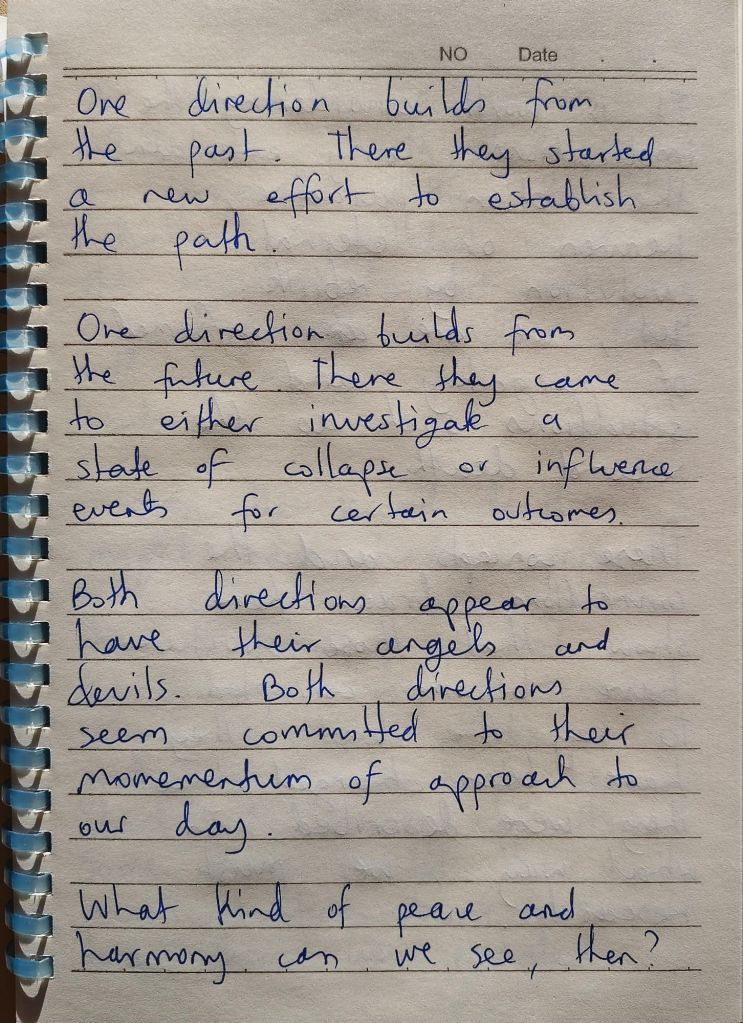 NO Date . .
One direction builds from
the past. There they started
a new effort to establish
the path.
One direction builds from
the future. There they came
to either investigate a
state of collapse or influence
events for certain outcomes.
Both directions appear to
have their angels and
devils. Both directions
seem committed to their
momementum of approach to
our day.
What kind of peace and
harmony can we see, then?